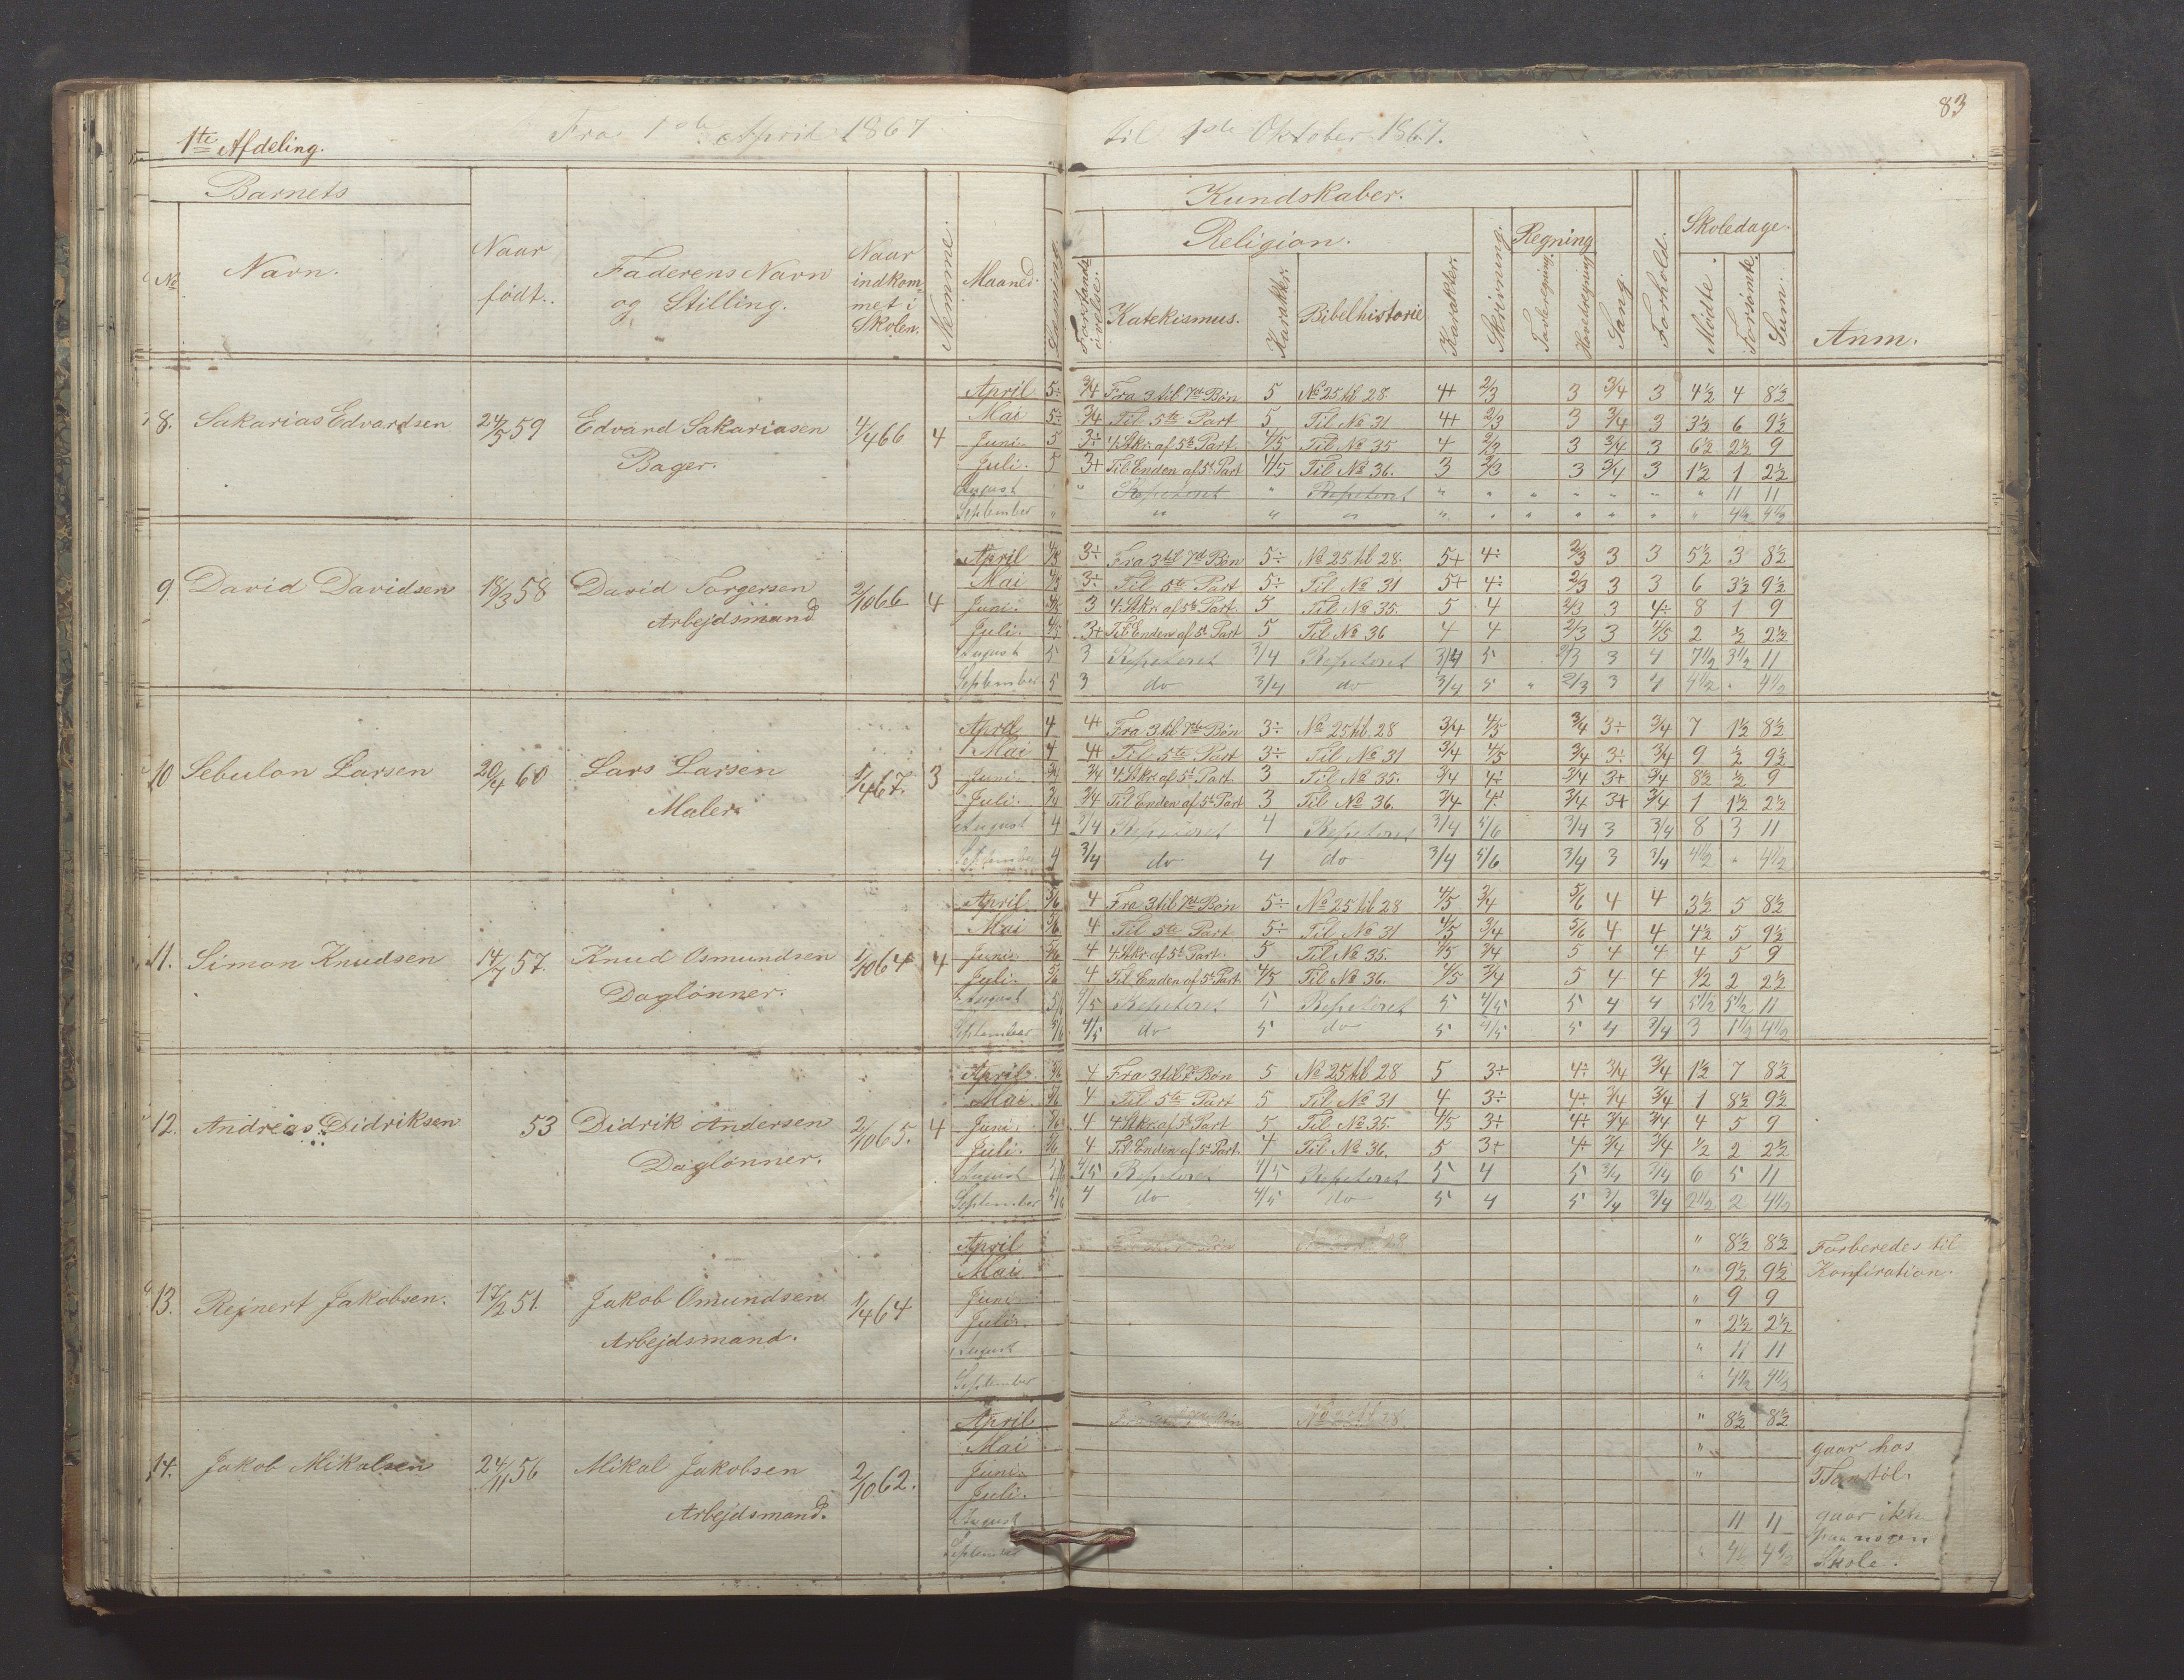 83
1te Afdeling. Fra 1ste April 1867 til 1ste Oktober 1867.
Barnets
No Navn. Naar født. Faderens Navn og Stilling. Naar indkommet i Skolen. Nemme. Maaned. Læsning. Forstandsøvelse. Kundskaber. Religion. Katekismus. Karakter. Bibelhistorie Karakter. Skrivning. Regning Tavleregning. Hovedregning Sang. Forhold. Skoledage. Mødte. Forsømte. Sum. Anm.
8. Sakarias Edvardsen 24/5 59 Edvard Sakariasen 4/4 66 4
Bager.
April 5÷ 3/4 Fra 3 til 7de Bøn 5 No 25 til 28. 4+ 2/3 3 3/4 3 4½ 4 8½
Mai 5÷ 3/4 Til 5te Part 5 Til No 31 4+ 2/3 3 3/4 3 3½ 6 9½
Juni 5 3÷ 4 Stkr. af 5te Part. 4/5 Til No 35 4 2/3 3 3/4 3 6½ 2½ 9
Juli. 5 3+ Til Enden af 5t Part 4/5 Til No 36. 3 2/3 3 3/4 3 1½ 1 2½
August " Repeteret " Repeteret " " " " " " " 11 11
September " " " " " " " " " " " 4½ 4½
9. David Davidsen 18/3 58 David Torgersen 2/10 66 4
Arbejdsmand
April 4/5 3÷ Fra 3 til 7d Bøn 5÷ No 25 til 28. 5+ 4÷ 2/3 3 3 5½ 3 8½
Mai 4/5 3÷ Til 5te Part 5÷ Til No 31 5+ 4÷ 2/3 3 3 6 3½ 9½
Juni. 4/5 3 4 Stkr. af 5te Part. 5 Til No 35. 5 4 2/3 3 4÷ 8 1 9
Juli. 4/5 3+ Til Enden af 5t Part 5 Til No 36 4 4 2/3 3 4/5 2 ½ 2½
August 5 3 Repeteret 3/4 Repeteret 3/4 5 2/3 3 4 7½ 3½ 11
September 5 3 do 3/4 do 3/4 5 " 2/3 3 4 4½ " 4½
10 Sebulon Larsen 20/4 60 Lars Larsen 5/4 67. 3
Maler.
April 4 4+ Fra 3 til 7de Bøn 3÷ No 25 til 28 3/4 4/5 3/4 3÷ 3/4 7 1½ 8½
Mai 4 4+ Til 5te Part 3÷ Til No 31 3/4 4/5 3/4 3÷ 3/4 9 ½ 9½
Juni 3/4 3/4 4 Stkr. af 5t Part. 3 Til No 35. 3/4 4÷ 3/4 3+ 3/4 8½ ½ 9
Juli. 3/4 3/4 Til Enden af 5t Part 3 Til No 36. 3/4 4÷ 3/4 3+ 3/4 1 1½ 2½
August 4 3/4 Repeteret 4 Repeteret 3/4 5/6 3/4 3 3/4 8 3 11
September 4 3/4 do 4 do 3/4 5/6 3/4 3 3/4 4½ " 4½
11. Simon Knudsen 14/7 57. Knud Osmundsen 1/10 64 4
Daglønner.
April 5/6 4 Fra 3 til 7de Bøn 5÷ No 25 til 28 4/5 3/4 5/6 4 4 3½ 5 8½
Mai 5/6 4 Til 5te Part 5÷ Til No 31 4/5 3/4 5/6 4 4 4½ 5 9½
Juni 5/6 4 4 Stkr. af 5t Part. 5 Til No 35. 4/5 3/4 5 4 4 4 5 9
Juli. 5/6 4 Til Enden af 5t Part. 4/5 Til No 36. 4/5 3/4 5 4 4 ½ 2 2½
August 5/6 4/5 Repeteret 5 Repeteret 5 4/5 5 4 4 5½ 5½ 11
September 5/6 4/5 do 5 do 5 4/5 5 4 3/4 3 1½ 4½
12. Andreas Didriksen 53 Didrik Andersen 2/10 65. 4
Daglønner.
April. 5/6 4 Fra 3 til 7. Bøn 5 No 25 til 28 5 3÷ 4÷ 3/4 3/4 1½ 7 8½
Mai. 5/6 4 Til 5te Part 5 Til No 31 4 3÷ 4÷ 3/4 3/4 1 8½ 9½
Juni. 5/6 4 4 Stkr. af 5t Part 5 Til No 35. 4/5 3+ 4÷ 3/4 3/4 4 5 9
Juli. 5/6 4 Til Enden af 5t Part. 4 Til No 36. 5 3+ 4÷ 3/4 3/4 ½ 2 2½
August 5/6 4/5 Repeteret 4/5 Repeteret 5 4 5 3/4 3/4 6 5 11
September 5/6 4 do 4/5 do 5 4 5 3/4 3/4 2½ 2 4½
13. Rejnert Jakobsen. 17/2 51. Jakob Omundsen 1/4 64
Arbejdsmand.
April " 8½ 8½ Forberedes til
Mai " 9½ 9½ Konfiration.
Juni " 9 9
Juli. " 2½ 2½
August " 11 11
September " 4½ 4½
14. Jakob Mikalsen 24/11 56 Mikal Jakobsen 2/10 62.
Arbejdsmand.
April No 25 til 28. " 8½ 8½
Mai " gaar hos
Juni. "
Juli.
August 11 11 gaar ikke
September " 4½ 4½ paa nogen
Skole.